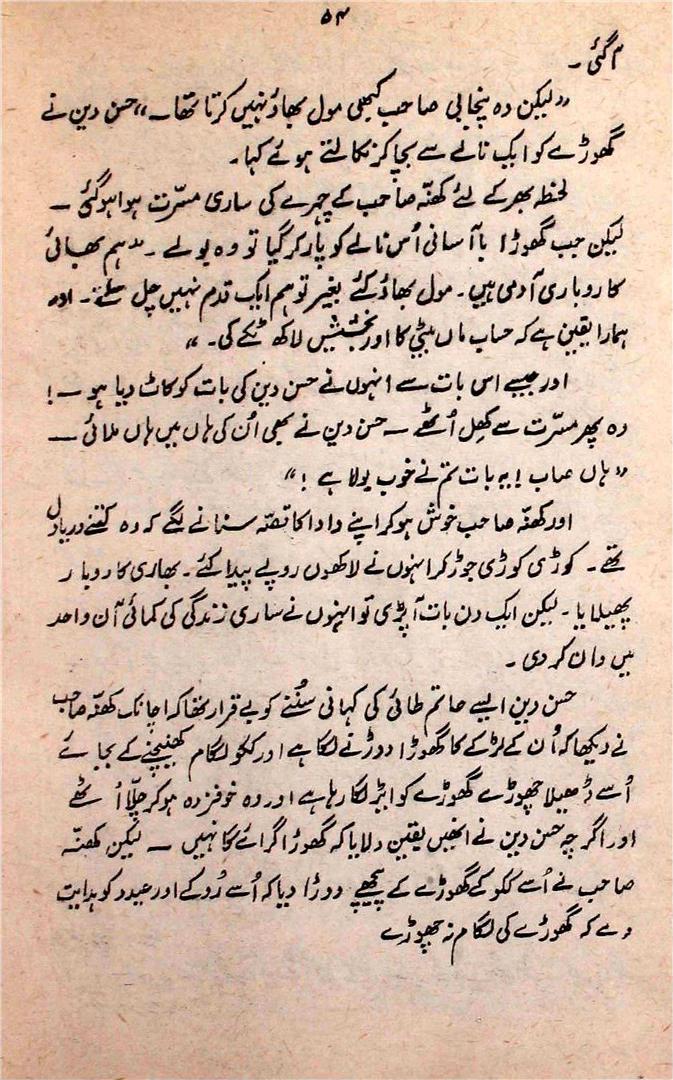 ۵۴
آ گئی۔
”لیکن وہ پنجابی صاحب کبھی مول بھاؤ نہیں کرتا تھا۔“ حسن دین نے
گھوڑے کو ایک نالے سے بچا کر نکالتے ہوئے کہا۔
لحظہ بھر کے لئے کھنّہ صاحب کے چہرے کی ساری مسّرت ہوا ہو گئی —
لیکن جب گھوڑا با آسانی اُس نالے کو پار کر گیا تو وہ بولے۔ ”ہم بھائی
کاروباری آدمی ہیں۔ مول بھاؤ کئے بغیر تو ہم ایک قدم نہیں چل سکتے۔ اور
ہمارا یقین ہے کہ حساب ماں بیٹی کا اور بخششیں لاکھ ٹکے کی۔“
اور جیسے اس بات سے انہوں نے حسن دین کی بات کو کاٹ دیا ہو —!
وہ پھر مسّرت سے کھِل اُٹھے — حسن دین نے بھی اُن کی ہاں میں ہاں ملائی —
”ہاں صاب! یہ بات تم نے خوب بولا ہے!“
اور کھنّہ صاحب خوش ہو کر اپنے دادا کا قصّہ سنانے لگے کہ وہ کتنے دریادل
تھے۔ کوڑی کوڑی جوڑ کر انہوں نے لاکھوں روپے پیدا کئے۔ بھاری کاروبار
پھیلایا۔ لیکن ایک دن بات آ پڑی تو انہوں نے ساری زندگی کی کمائی آن واحد
میں دان کر دی۔
حسن دین ایسے حاتم طائی کی کہانی سُننے کو بے قرار تھا کہ اچانک کھنّہ صاحب
نے دیکھا کہ اُن کے لڑکے کا گھوڑا دوڑنے لگا ہے اور ککو لگام کھینچنے کے بجائے
اُسے ڈھیلا چھوڑے گھوڑے کو ایڑ لگا رہا ہے اور وہ خوفزدہ ہو کر چلّا اُٹھے
اور اگرچہ حسن دین نے انھیں یقین دلایا کہ گھوڑا گرائے گا نہیں — لیکن کھنّہ
صاحب نے اُسے ککو کے گھوڑے کے پیچھے دوڑا دیا کہ اُسے روکے اور عیدو کو ہدایت
دے کہ گھوڑے کی لگام نہ چھوڑے